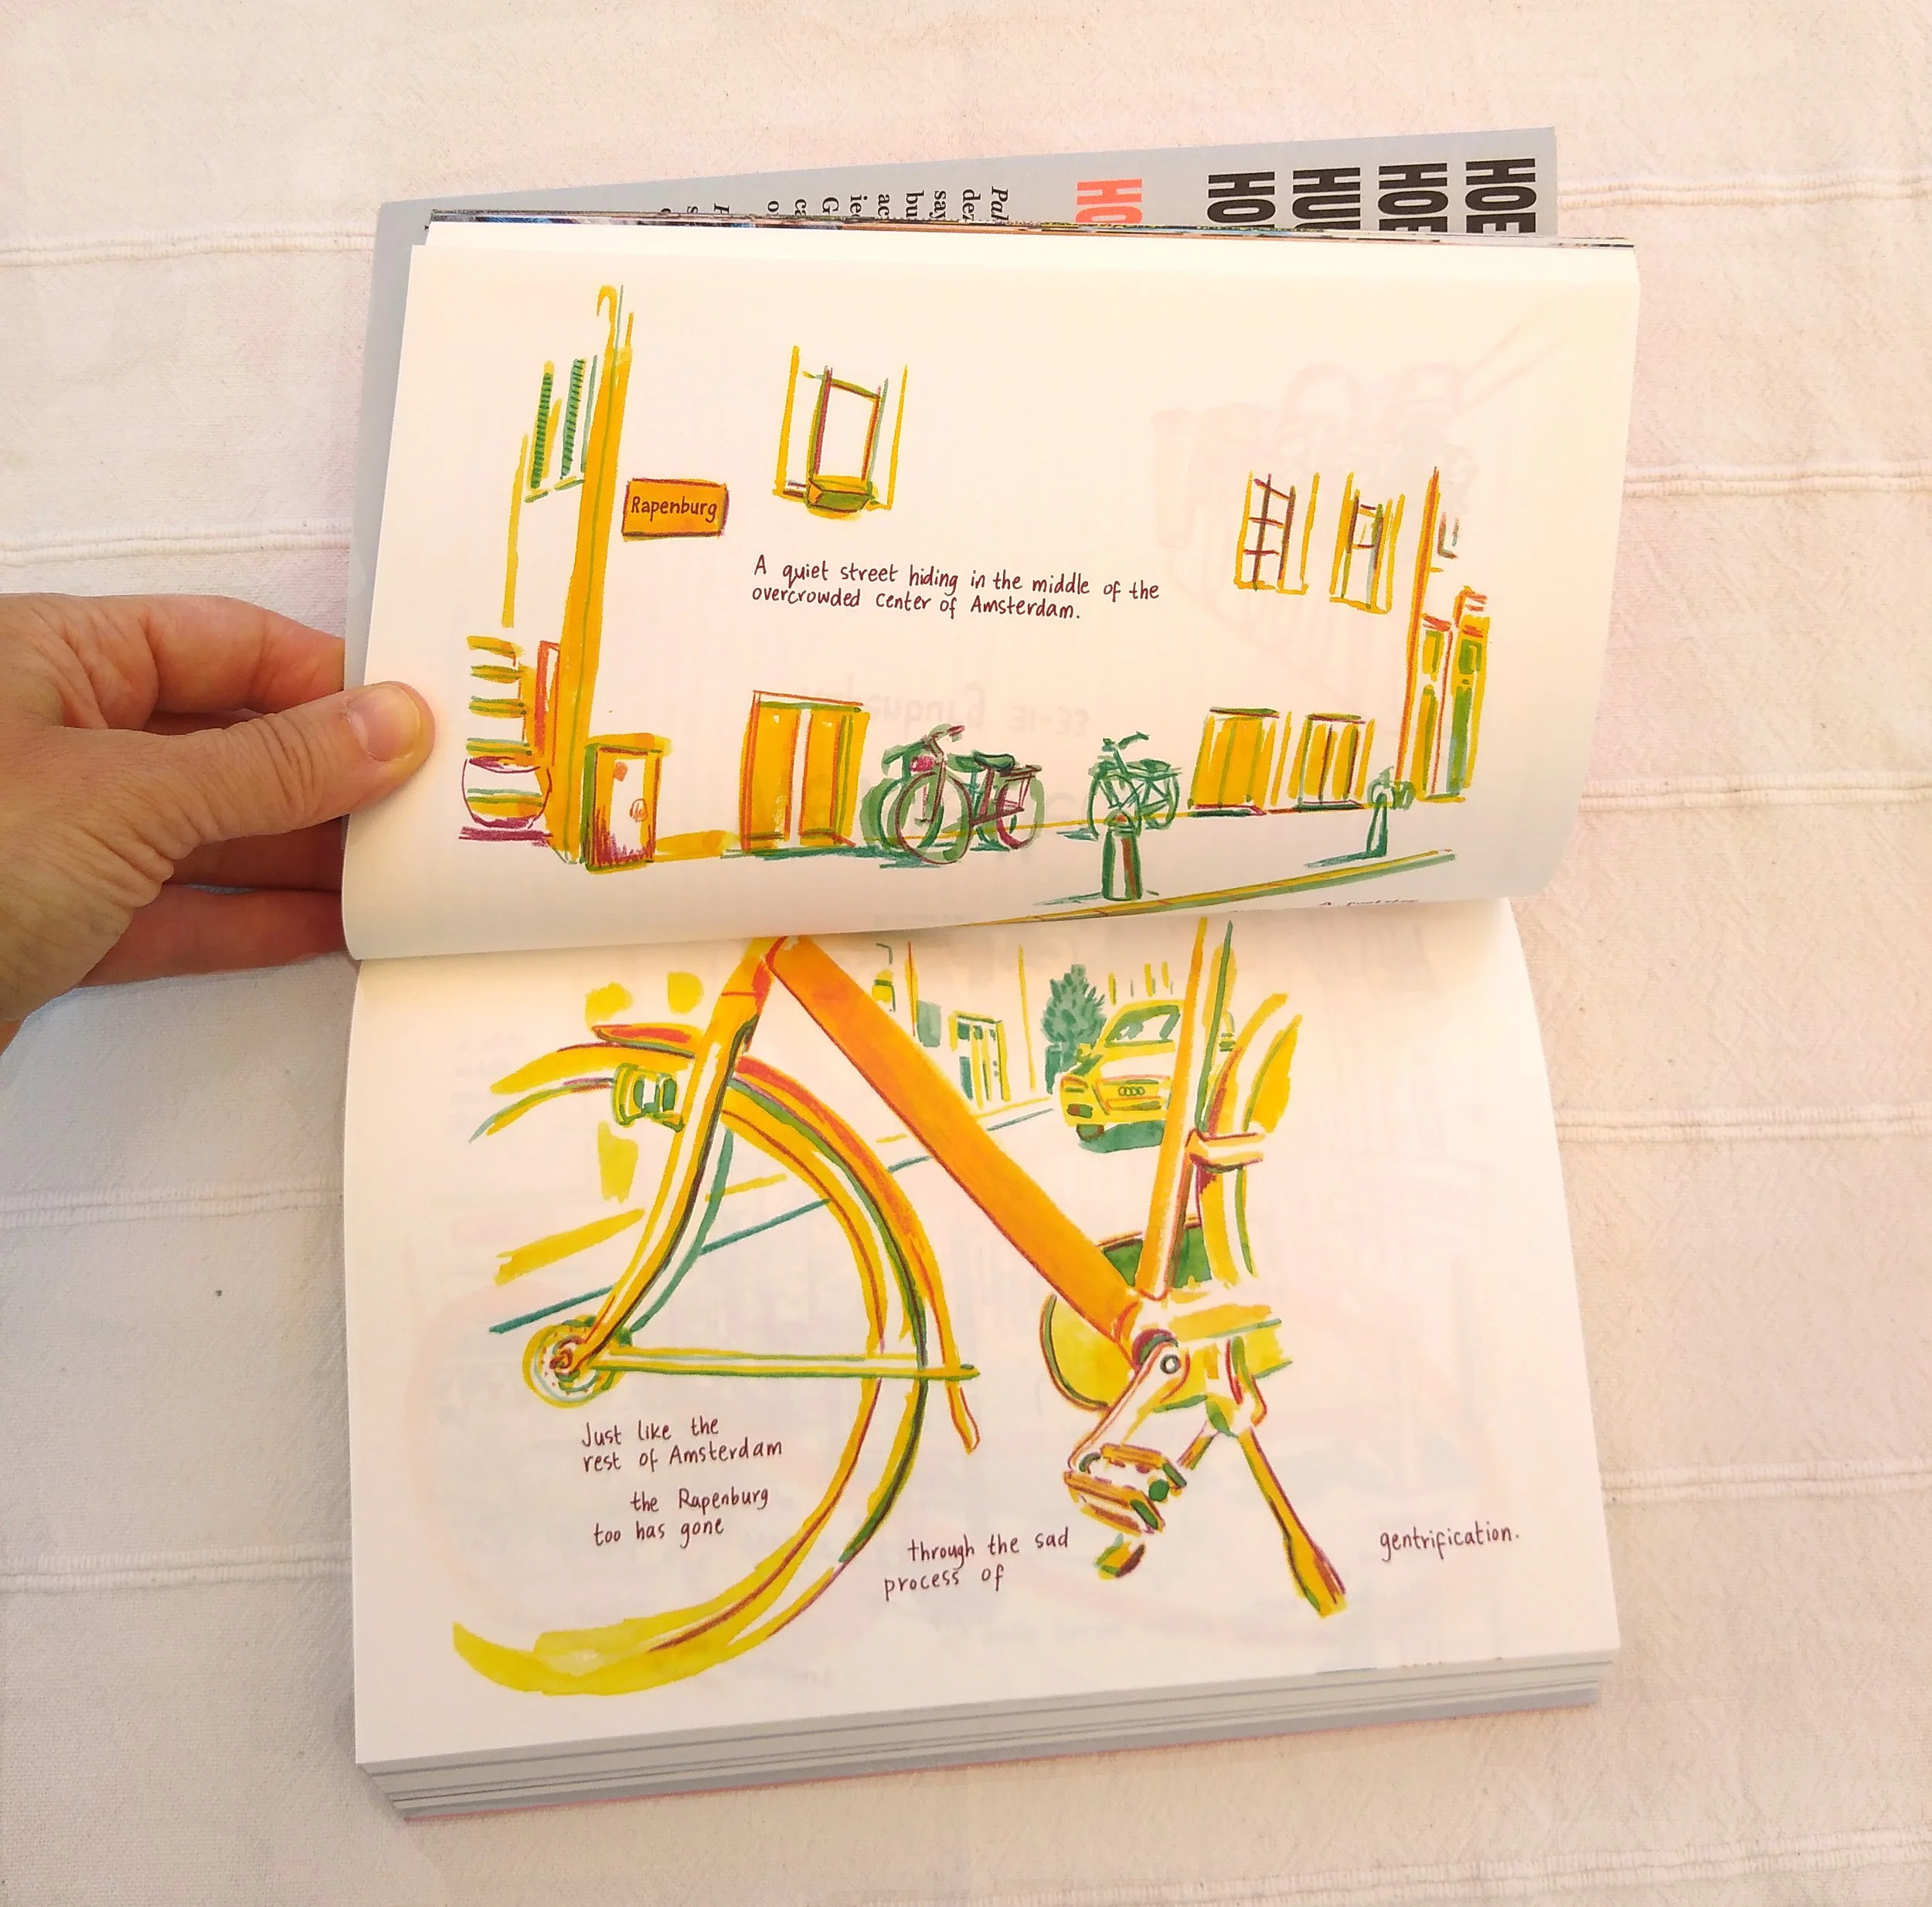 HOE
HOE
HUI
HO
HO
Rapenburg
A quiet street hiding in the middle of the
overcrowded center of Amsterdam.
Just like the
rest of Amsterdam
the Rapenburg
too has gone
through the sad
process of
gentrification.